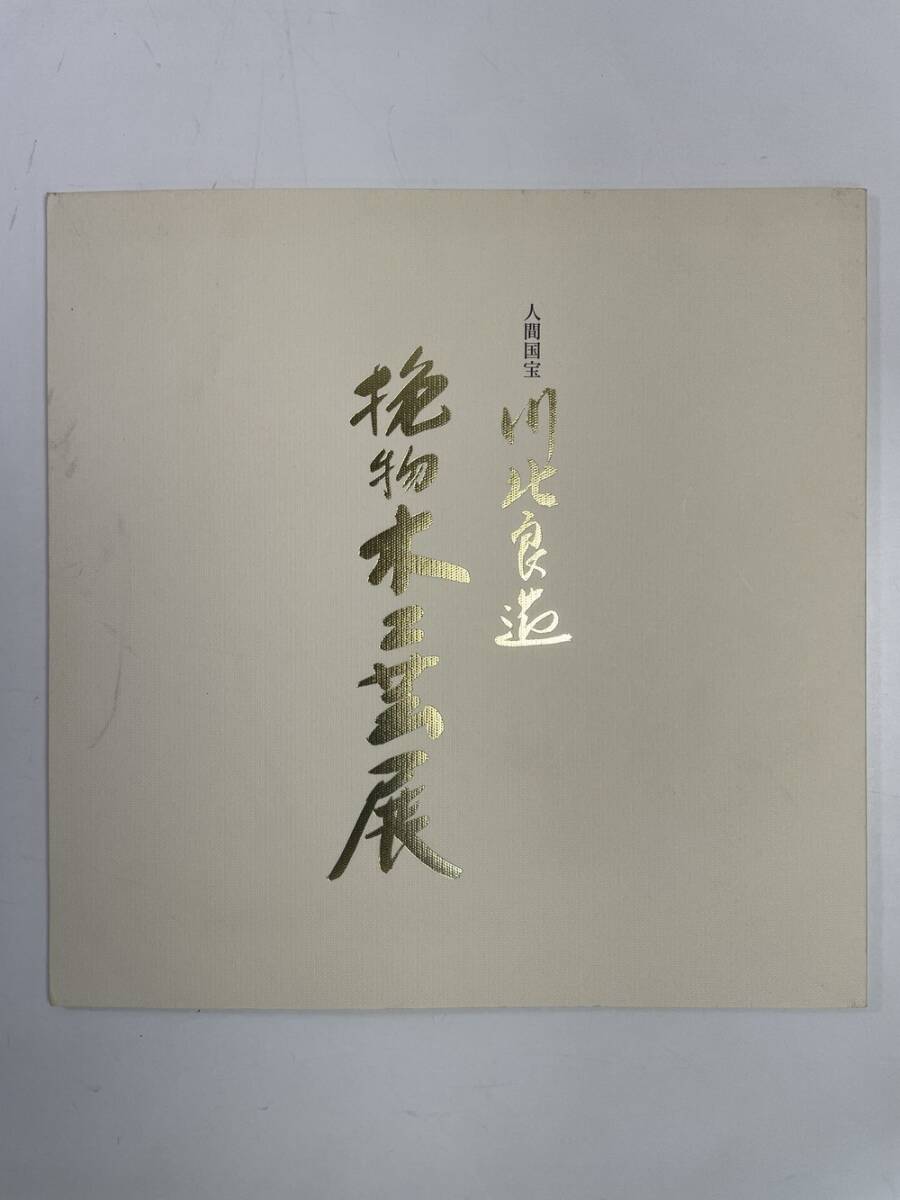 人間国宝
川北良造
挽物木工芸展